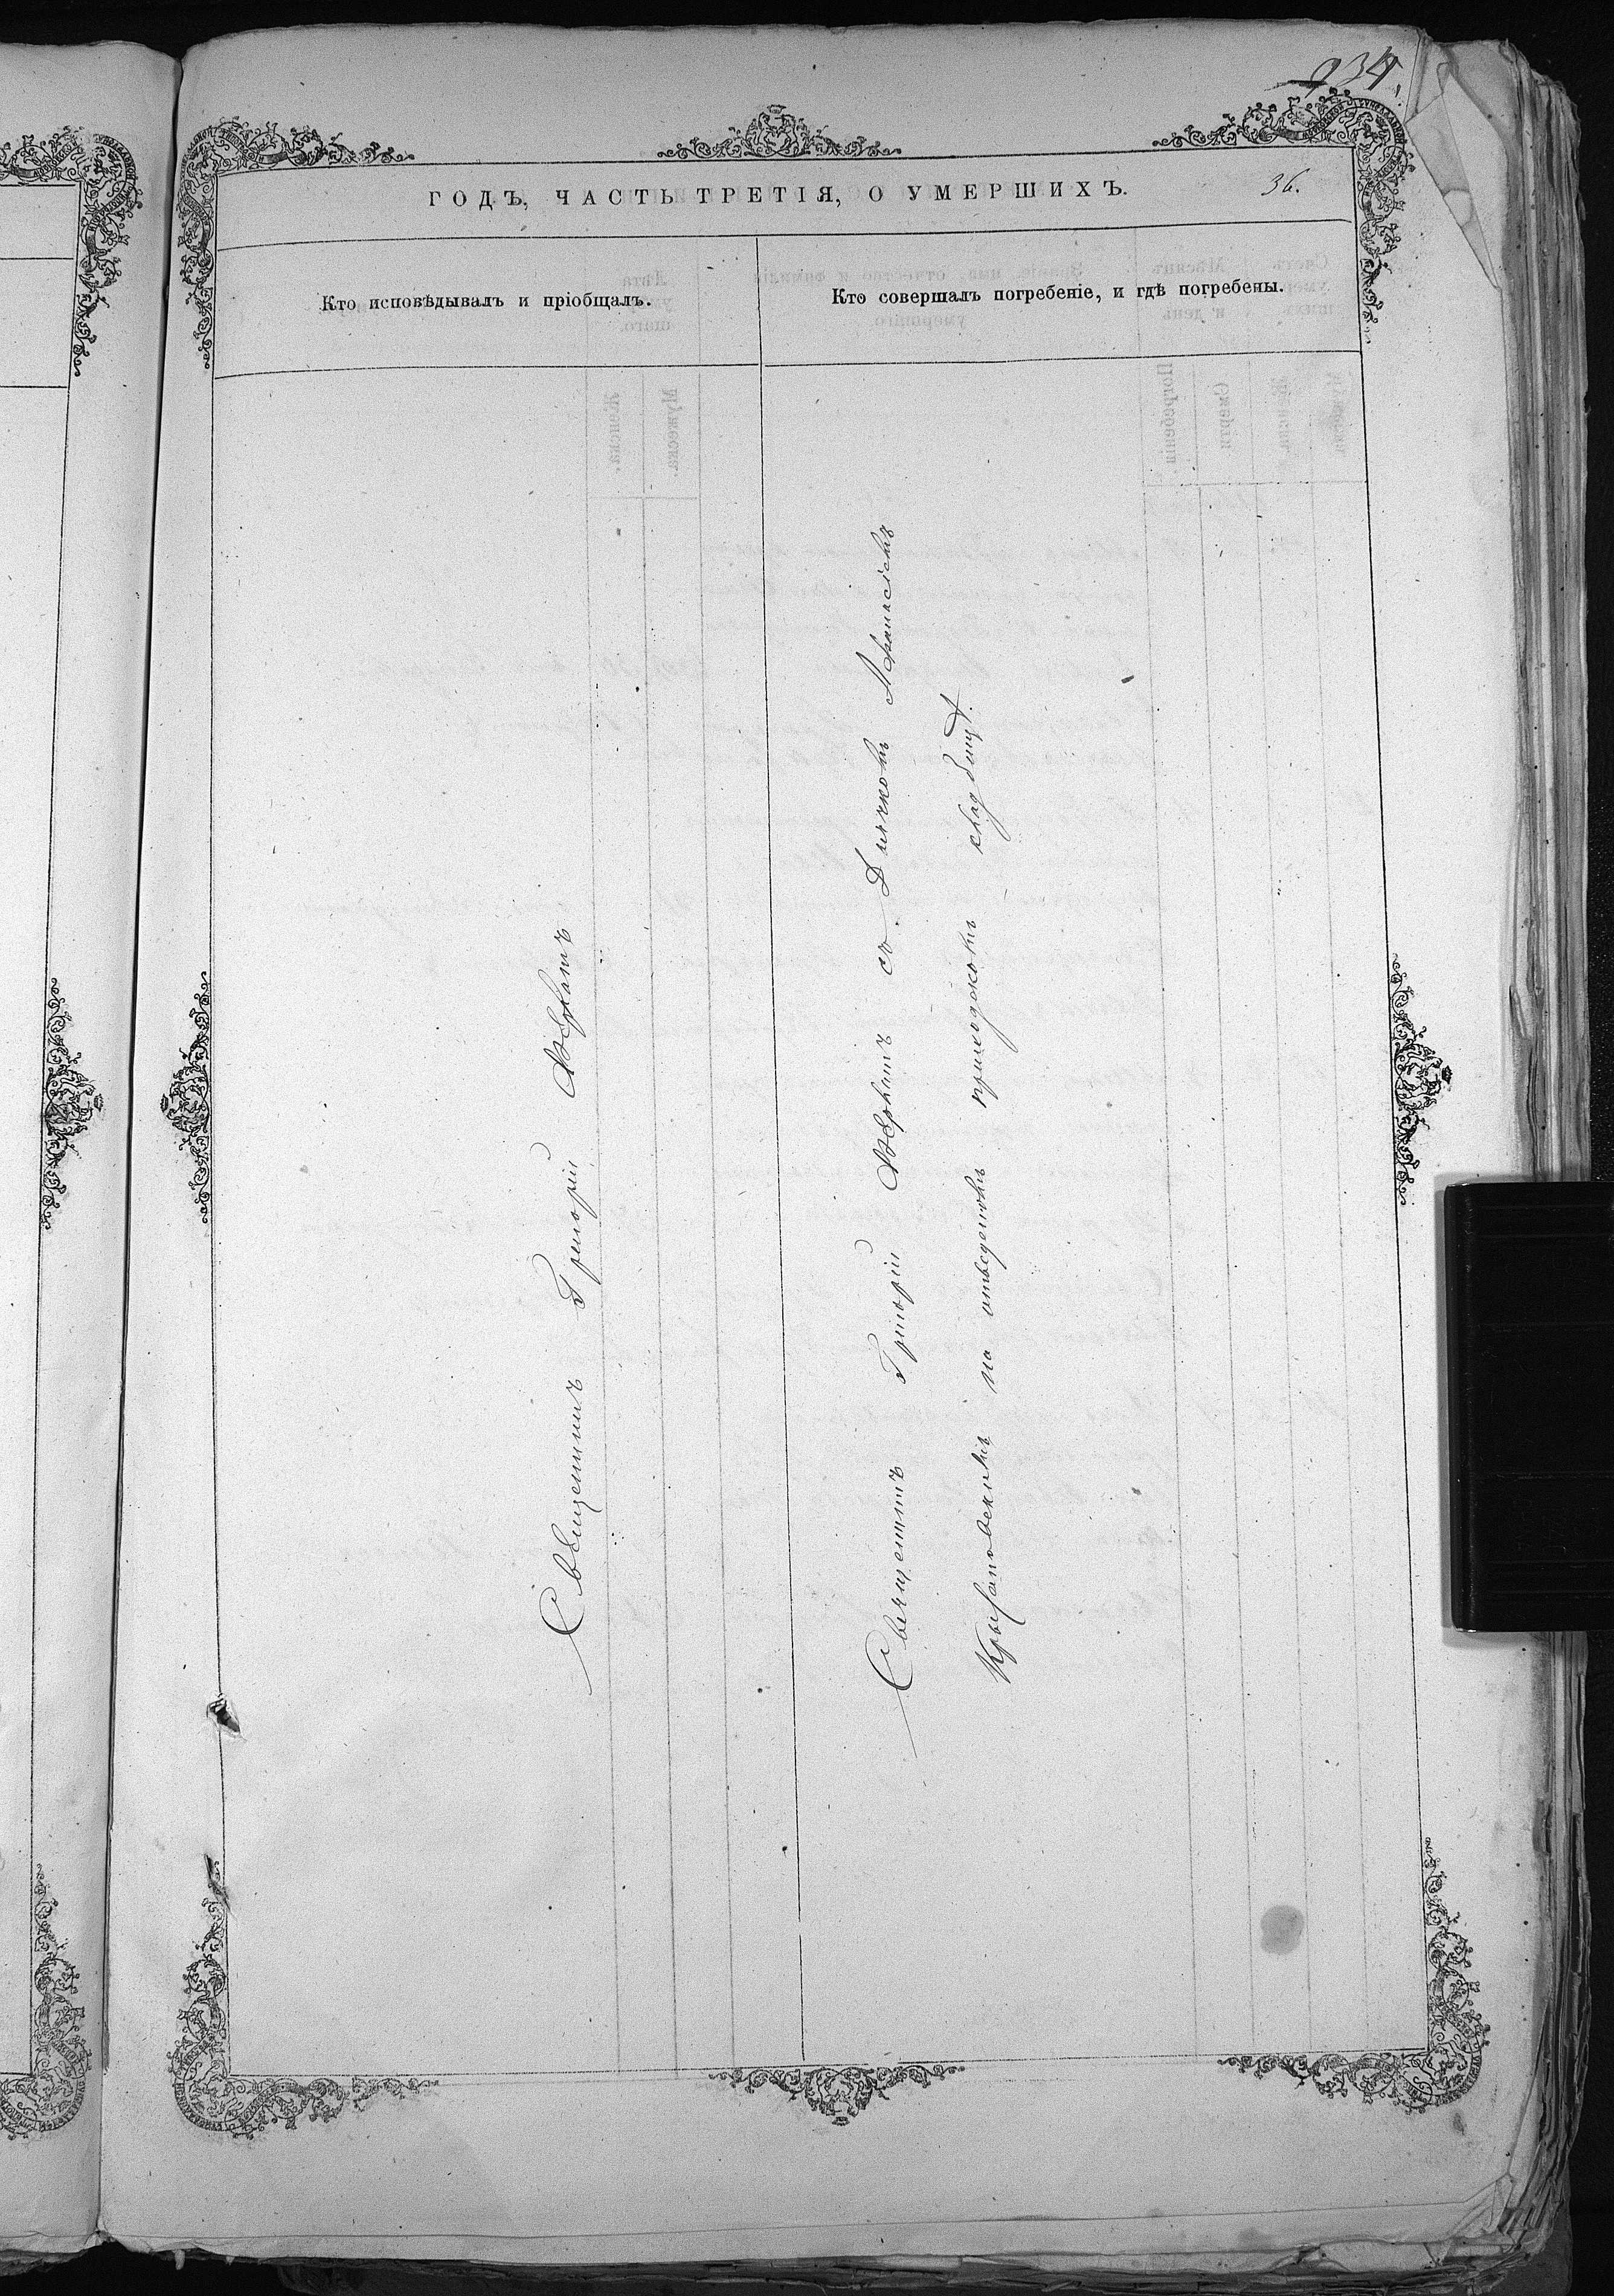 934.
ГОДЪ, ЧАСТЬ ТРЕТІЯ, О УМЕРШИХЪ. 36.
Кто исповѣдывалъ и пріобщалъ.
Кто совершалъ погребеніе, и гдѣ погребены.
Священникъ Григорій
Священникъ Григорій съ Дьячкомъ
на отведенномъ приходскомъ кладбищѣ.